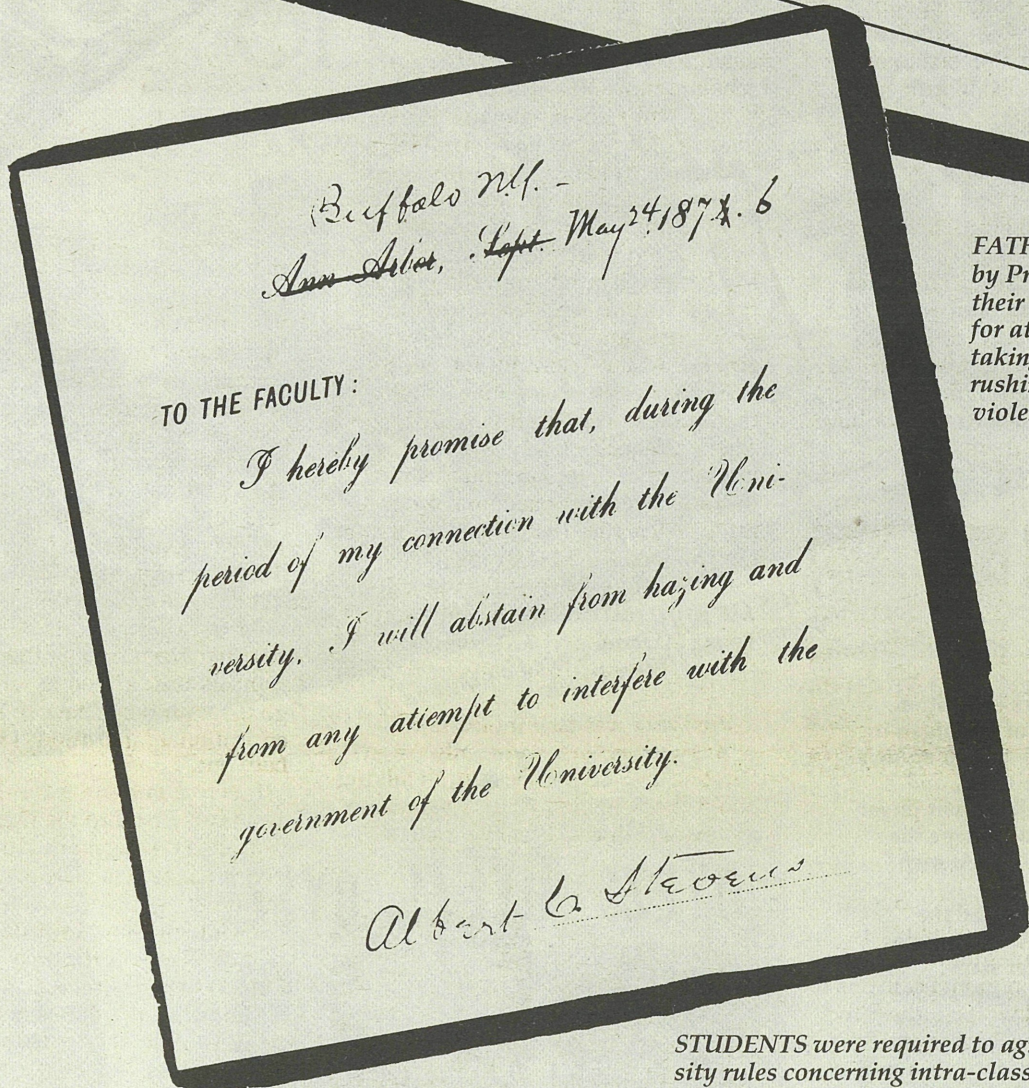 Buffalo N.Y. -
Ann Arbor, Sept. May 24, 1874. 6
TO THE FACULTY:
I hereby promise that, during the
period of my connection with the Uni-
versity, I will abstain from hazing and
from any attempt to interfere with the
government of the University.
Albert C. Stevens
FATH
by Pr
their
for at
taking
rushi
viole
STUDENTS were required to ag
sity rules concerning intra-class